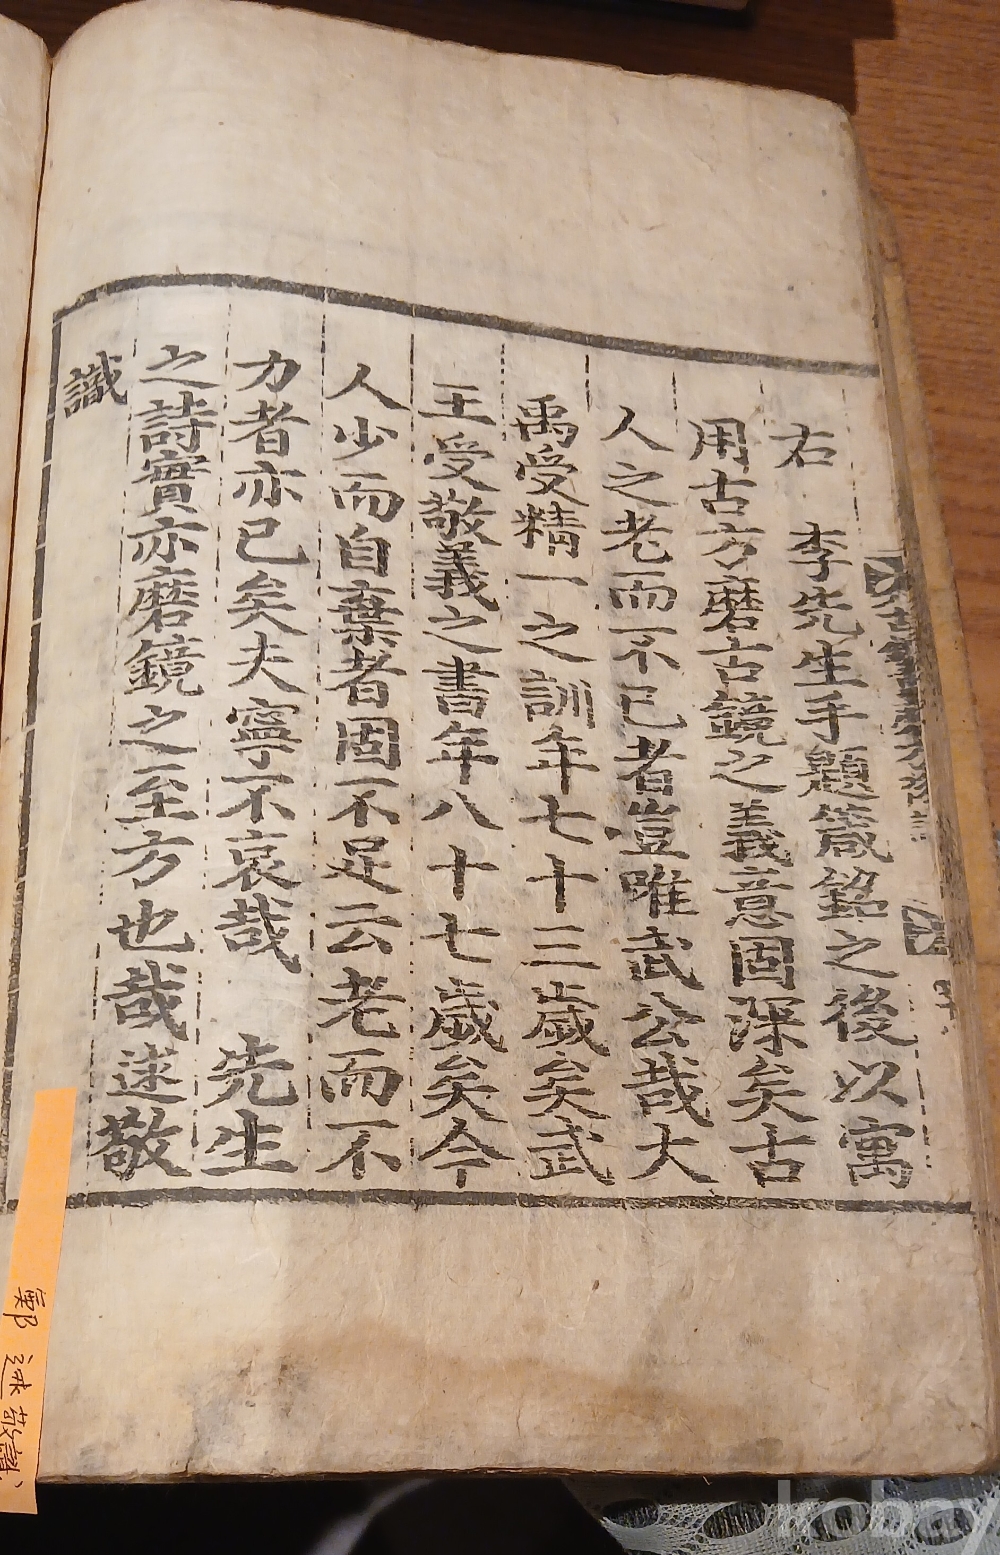 右 李先生手題箴銘之後以寓
用古方磨古鏡之義意固深矣古
人之老而不已者豈唯武公哉大
禹受精一之訓年七十三歲矣武
王受敬義之書年八十七歲矣今
人少而自棄者固不足云老而不
力者亦已矣夫寧不哀哉 先生
之詩實亦磨鏡之至方也哉逑敬
識
鄭逑敬識
kobay